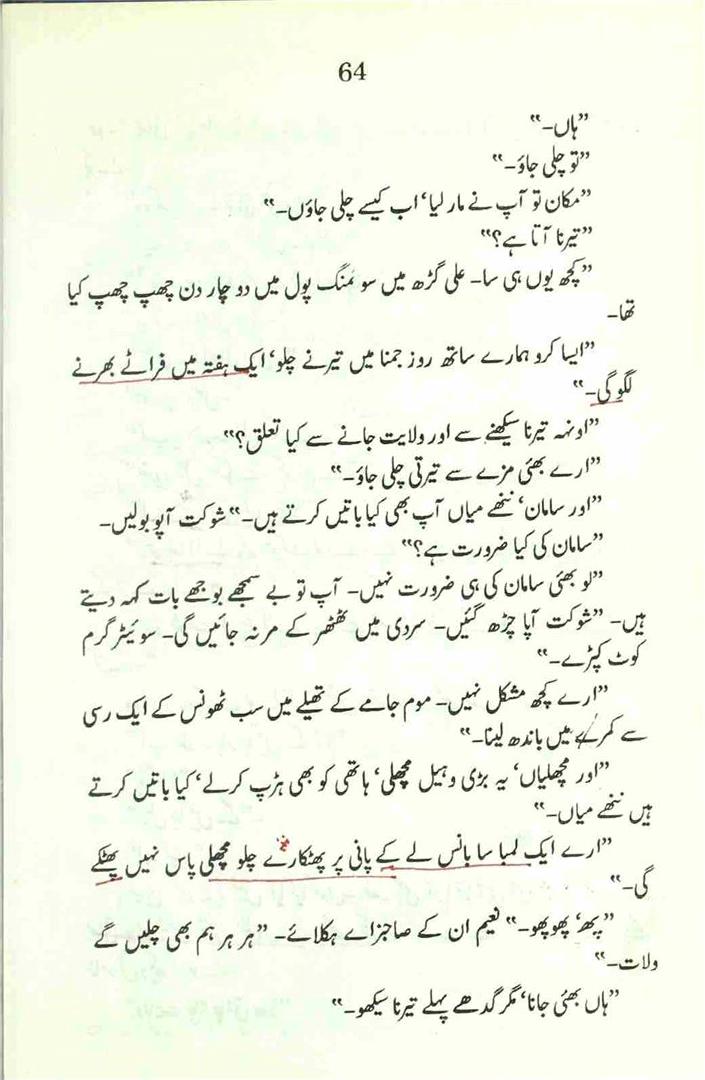 64
”ہاں۔“
”تو چلی جاؤ۔“
”مکان تو آپ نے مار لیا‘ اب کیسے چلی جاؤں۔“
”تیرنا آتا ہے؟“
”کچھ یوں ہی سا۔ علی گڑھ میں سوئمنگ پول میں دو چار دن چھپ چھپ کیا
تھا۔
”ایسا کرو ہمارے ساتھ روز جمنا میں تیرنے چلو‘ ایک ہفتہ میں فراٹے بھرنے
لگو گی۔“
”اونہہ تیرنا سیکھنے سے اور ولایت جانے سے کیا تعلق؟“
”ارے بھئی مزے سے تیرتی چلی جاؤ۔“
”اور سامان‘ ننھے میاں آپ بھی کیا باتیں کرتے ہیں۔“ شوکت آپو بولیں۔
”سامان کی کیا ضرورت ہے؟“
”لو بھئی سامان کی ہی ضرورت نہیں۔ آپ تو بے سمجھے بوجھے بات کہہ دیتے
ہیں۔ ”شوکت آپا چڑھ گئیں۔ سردی میں ٹھٹھر کے مر نہ جائیں گی۔ سوئیٹر گرم
کوٹ کپڑے۔“
”ارے کچھ مشکل نہیں۔ موم جامے کے تھیلے میں سب ٹھونس کے ایک رسی
سے کمر میں باندھ لینا۔“
”اور مچھلیاں‘ یہ بڑی وہیل مچھلی‘ ہاتھی کو بھی ہڑپ کر لے‘ کیا باتیں کرتے
ہیں ننھے میاں۔“
”ارے ایک لمبا سا بانس لے کے پانی پر پھٹکارے چلو مچھلی پاس نہیں پھٹکے
گی۔“
”پھ‘ پھوپھو۔“ نعیم ان کے صاحبزادے ہکلائے۔ ”ہر ہر ہم بھی چلیں گے
ولات۔“
”ہاں بھئی جانا‘ مگر گدھے پہلے تیرنا سیکھو۔“